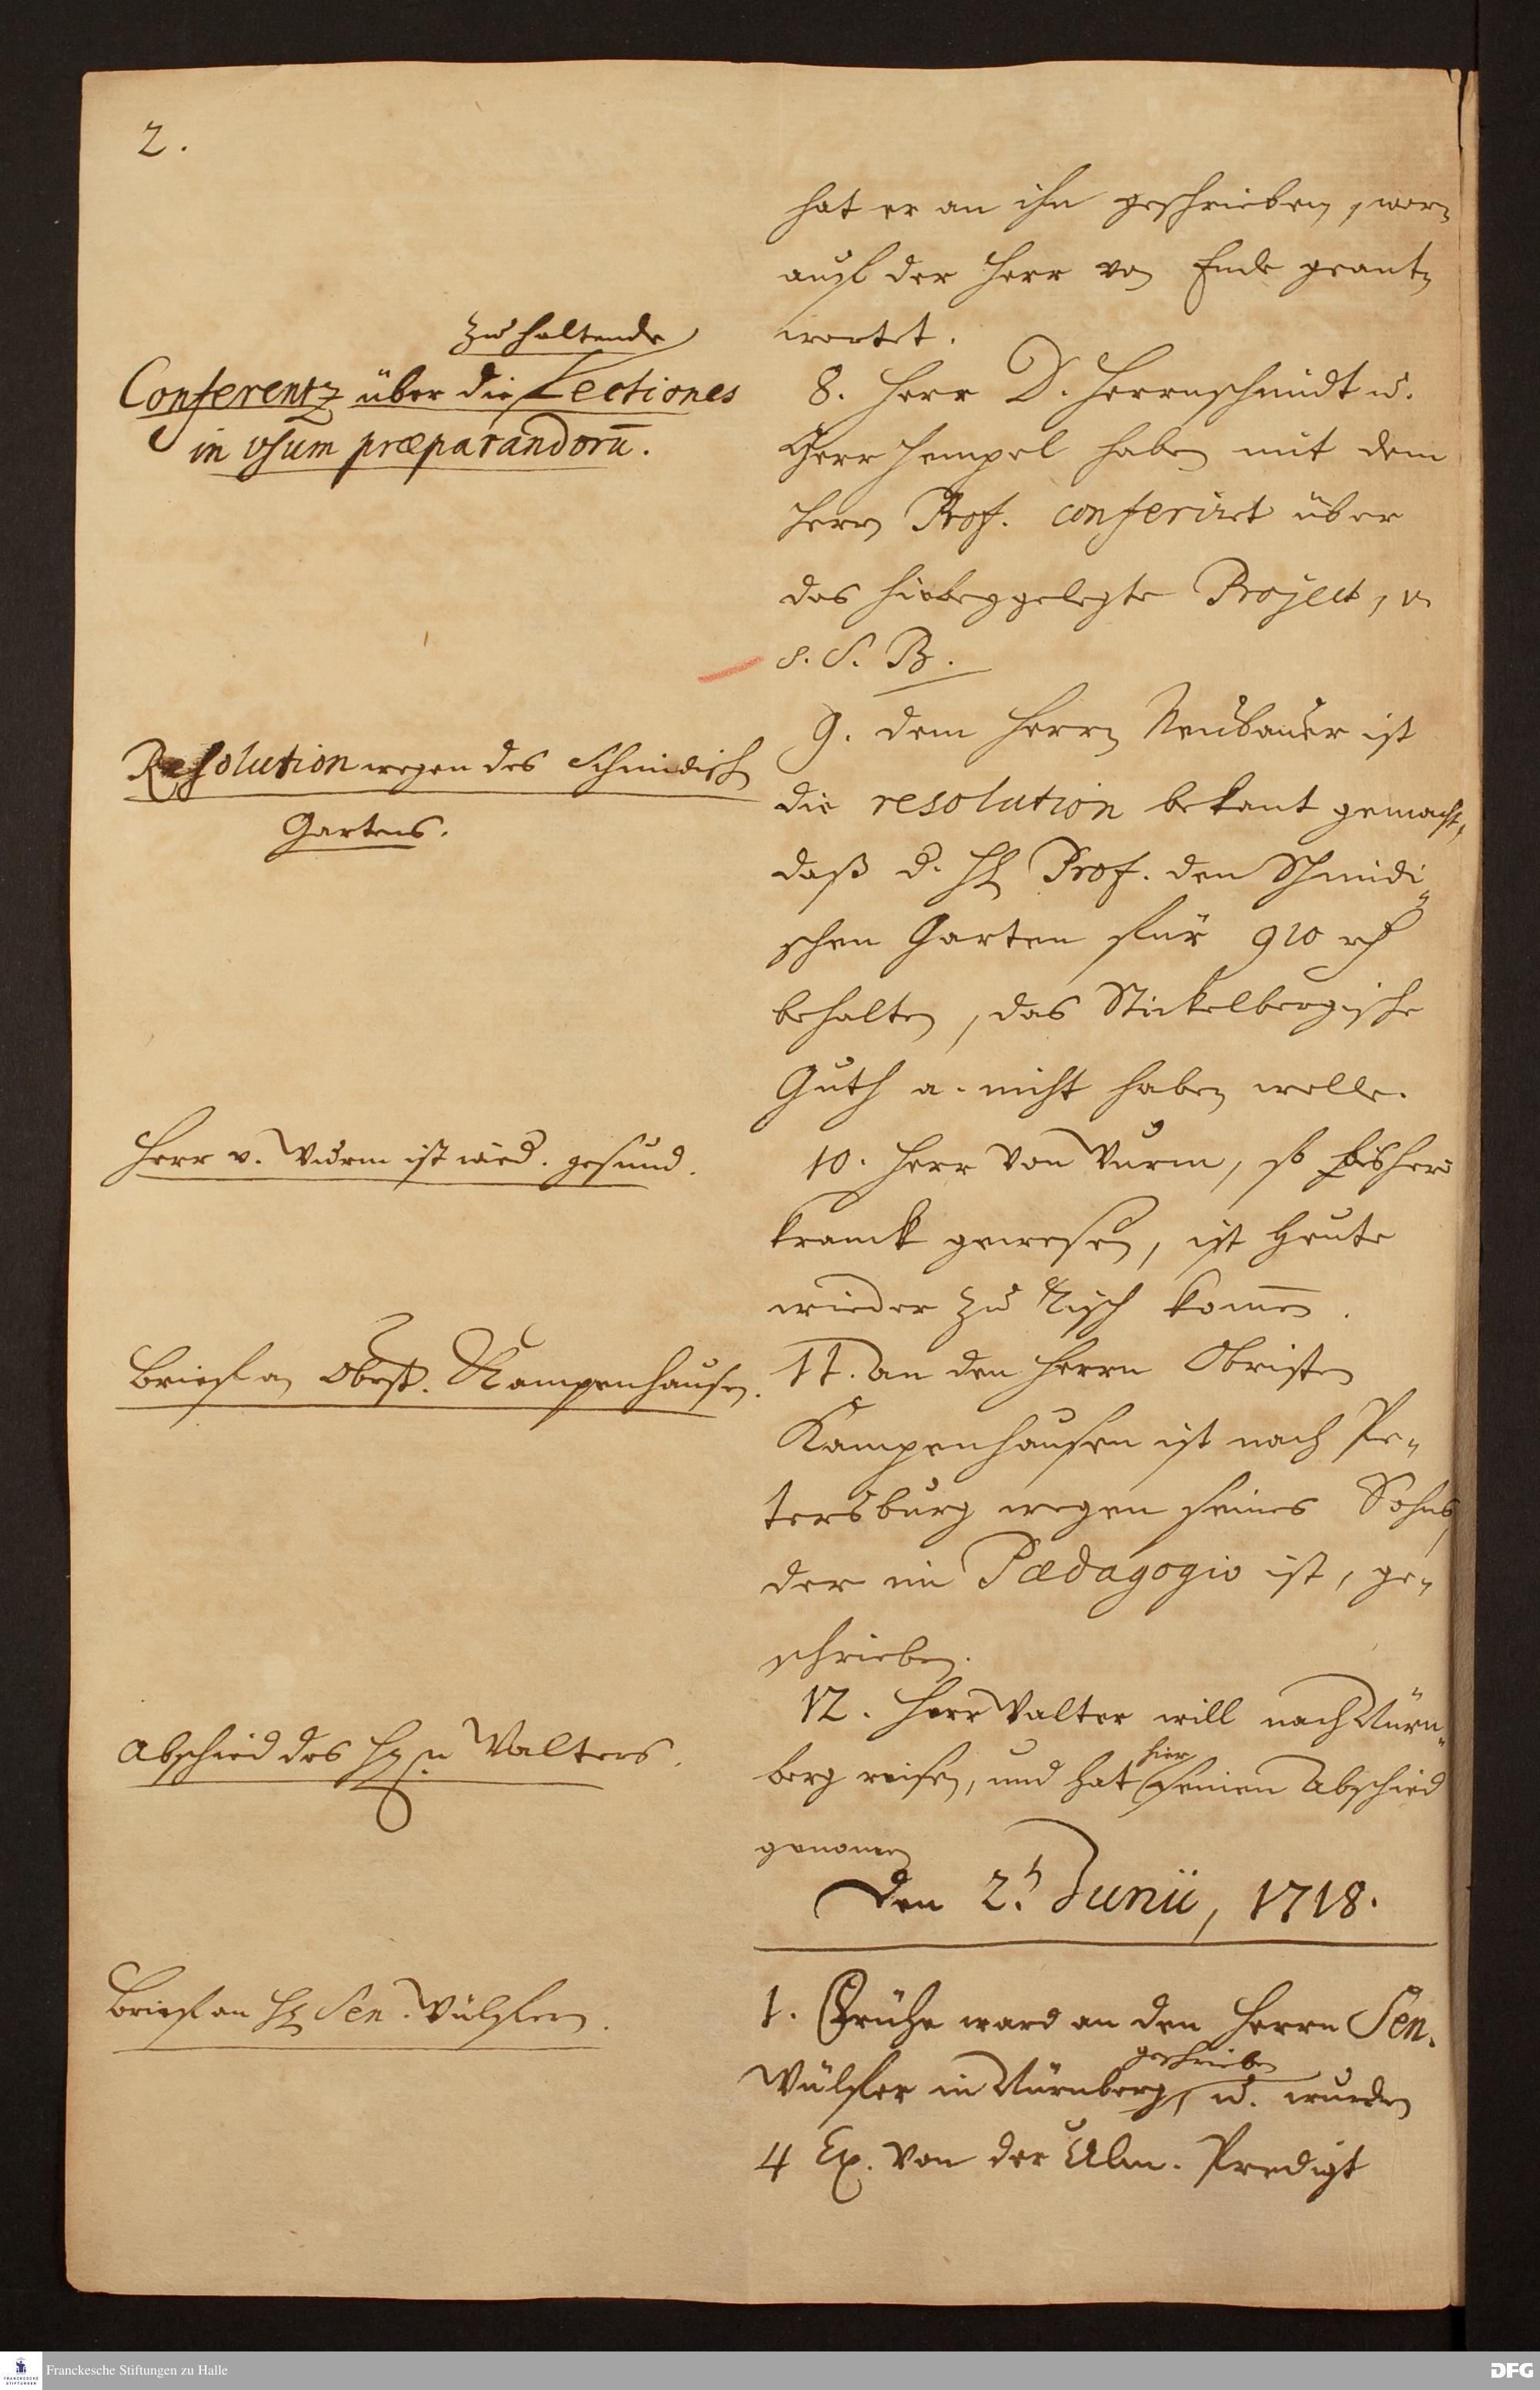 2.
hat er an ihn geschrieben, wor-
auf der Herr von Ende geant-
wortet.
zu haltende
Conferentz über die Lectiones
in usum præparandorū.
8. Herr D. Herrnschmidt u.
Herr Hempel haben mit dem
Herrn Prof. conferiret über
das hiebeygelegte Project,
s. S. B.
Resolution wegen des Schmidisch
Gartens.
9. dem Herrn Neubauer ist
die resolution bekant gemacht,
daß d. H Prof. den Schmidi-
schen Garten für 910 rth
behalten, das Stickelbergische
Guth a. nicht haben wolle.
Herr v. Wurm ist wied. gesund.
10. Herr von Wurm, so bishero
kranck gewesen, ist heute
wieder zu Tisch kom̄en.
Brief an Obrist. Kampenhausen.
11. An den Herrn Obristen
Kampenhausen ist nach Pe-
tersburg wegen seines Sohns,
der im Pædagogio ist, ge-
schrieben.
Abschied des H.n Walters.
12. Herr Walter will nach Nürn-
berg reisen, und hat hier seinen Abschied
genomen
Den 2. Junii, 1718.
Brief an H Sen. Wülfern.
1. Frühe ward an den Herrn Sen.
Wülfer in Nürnberg geschrieben, u. wurden
4 Ex. von der Ulm. Predigt
Franckesche Stiftungen zu Halle
FRANCKESCHE STIFTUNGEN
DFG